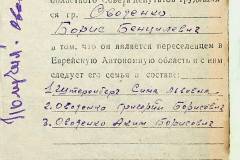 областного Совета депутатов трудящи
ся гр. Оводенко
Борис Бенцилевич
в том, что он является переселенцем в
Еврейскую Автономную область и с ним
следует его семья в составе:
1. Гутеренберг Сима Львовна
2. Оводенко Григорий Борисович
3. Оводенко Аким Борисович